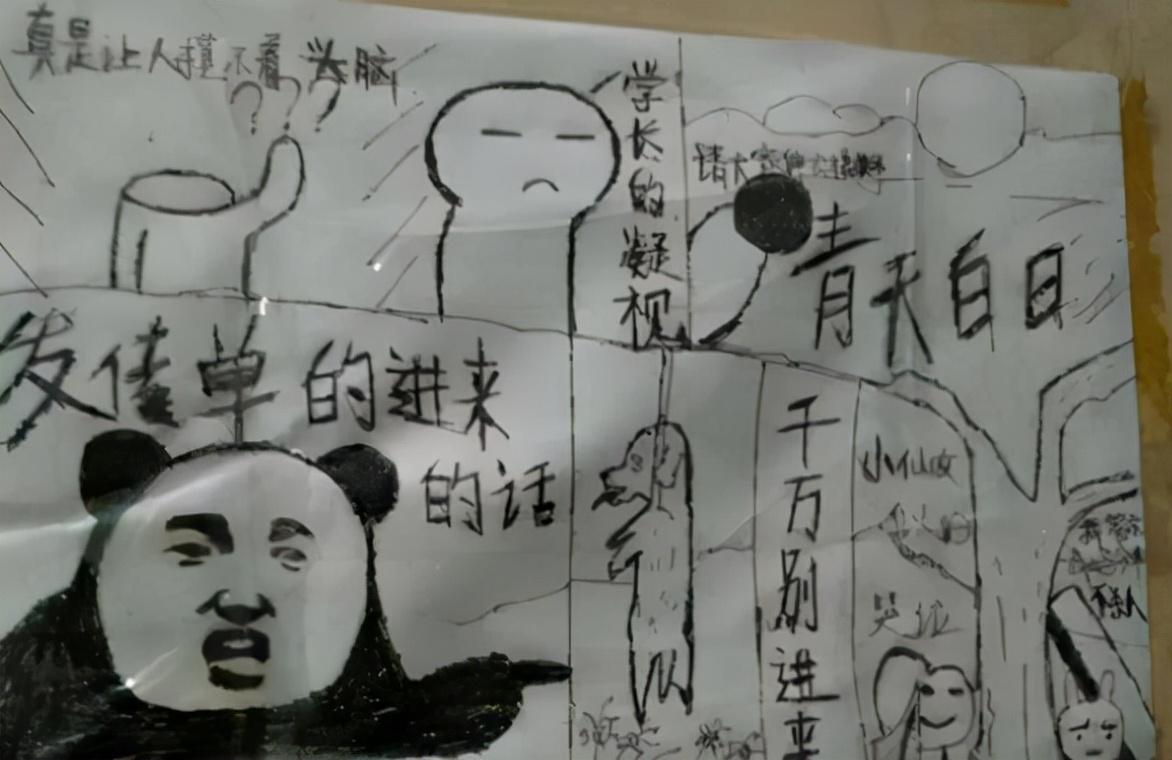 真是让人摸不着头脑
???
学长的凝视
请大家
青天白日
发传单的进来
的话
千万别进来
小仙女